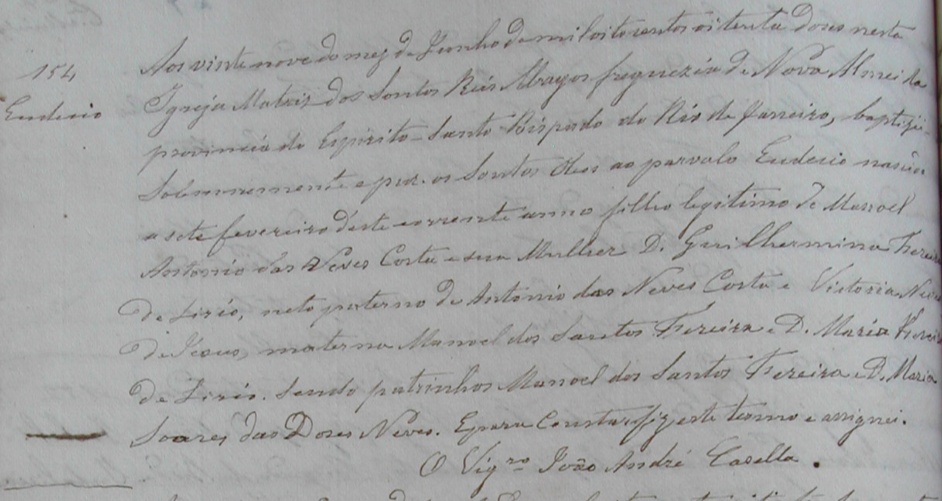 154
Euderio
Aos vinte nove do mez de Junho de mil oitocentos oitenta doses nesta
Igreja Matriz dos Santos Reis Magos freguezia de Nova Almeida
provincia do Espirito-Santo Bispado do Rio de Janeiro, baptizei
Solemnemente e puz os Santos Oleos ao parvalo Euderio nascido
a sete fevereiro d'este corrente anno filho legitimo de Manoel
Antonio das Neves Costa e sua Mulher D. Guilhermina Fereira
de Lirio, neto paterno de Antonio das Neves Costa e Victoria
de Jesus, materno Manoel dos Santos Fereira e D. Maria Fereira
de Lirio. Sendo patrinhos Manoel dos Santos Fereira e D. Maria
Soares das Dores Neves. E para Constar fiz este termo e assignei.
O Vigro João André Casella.